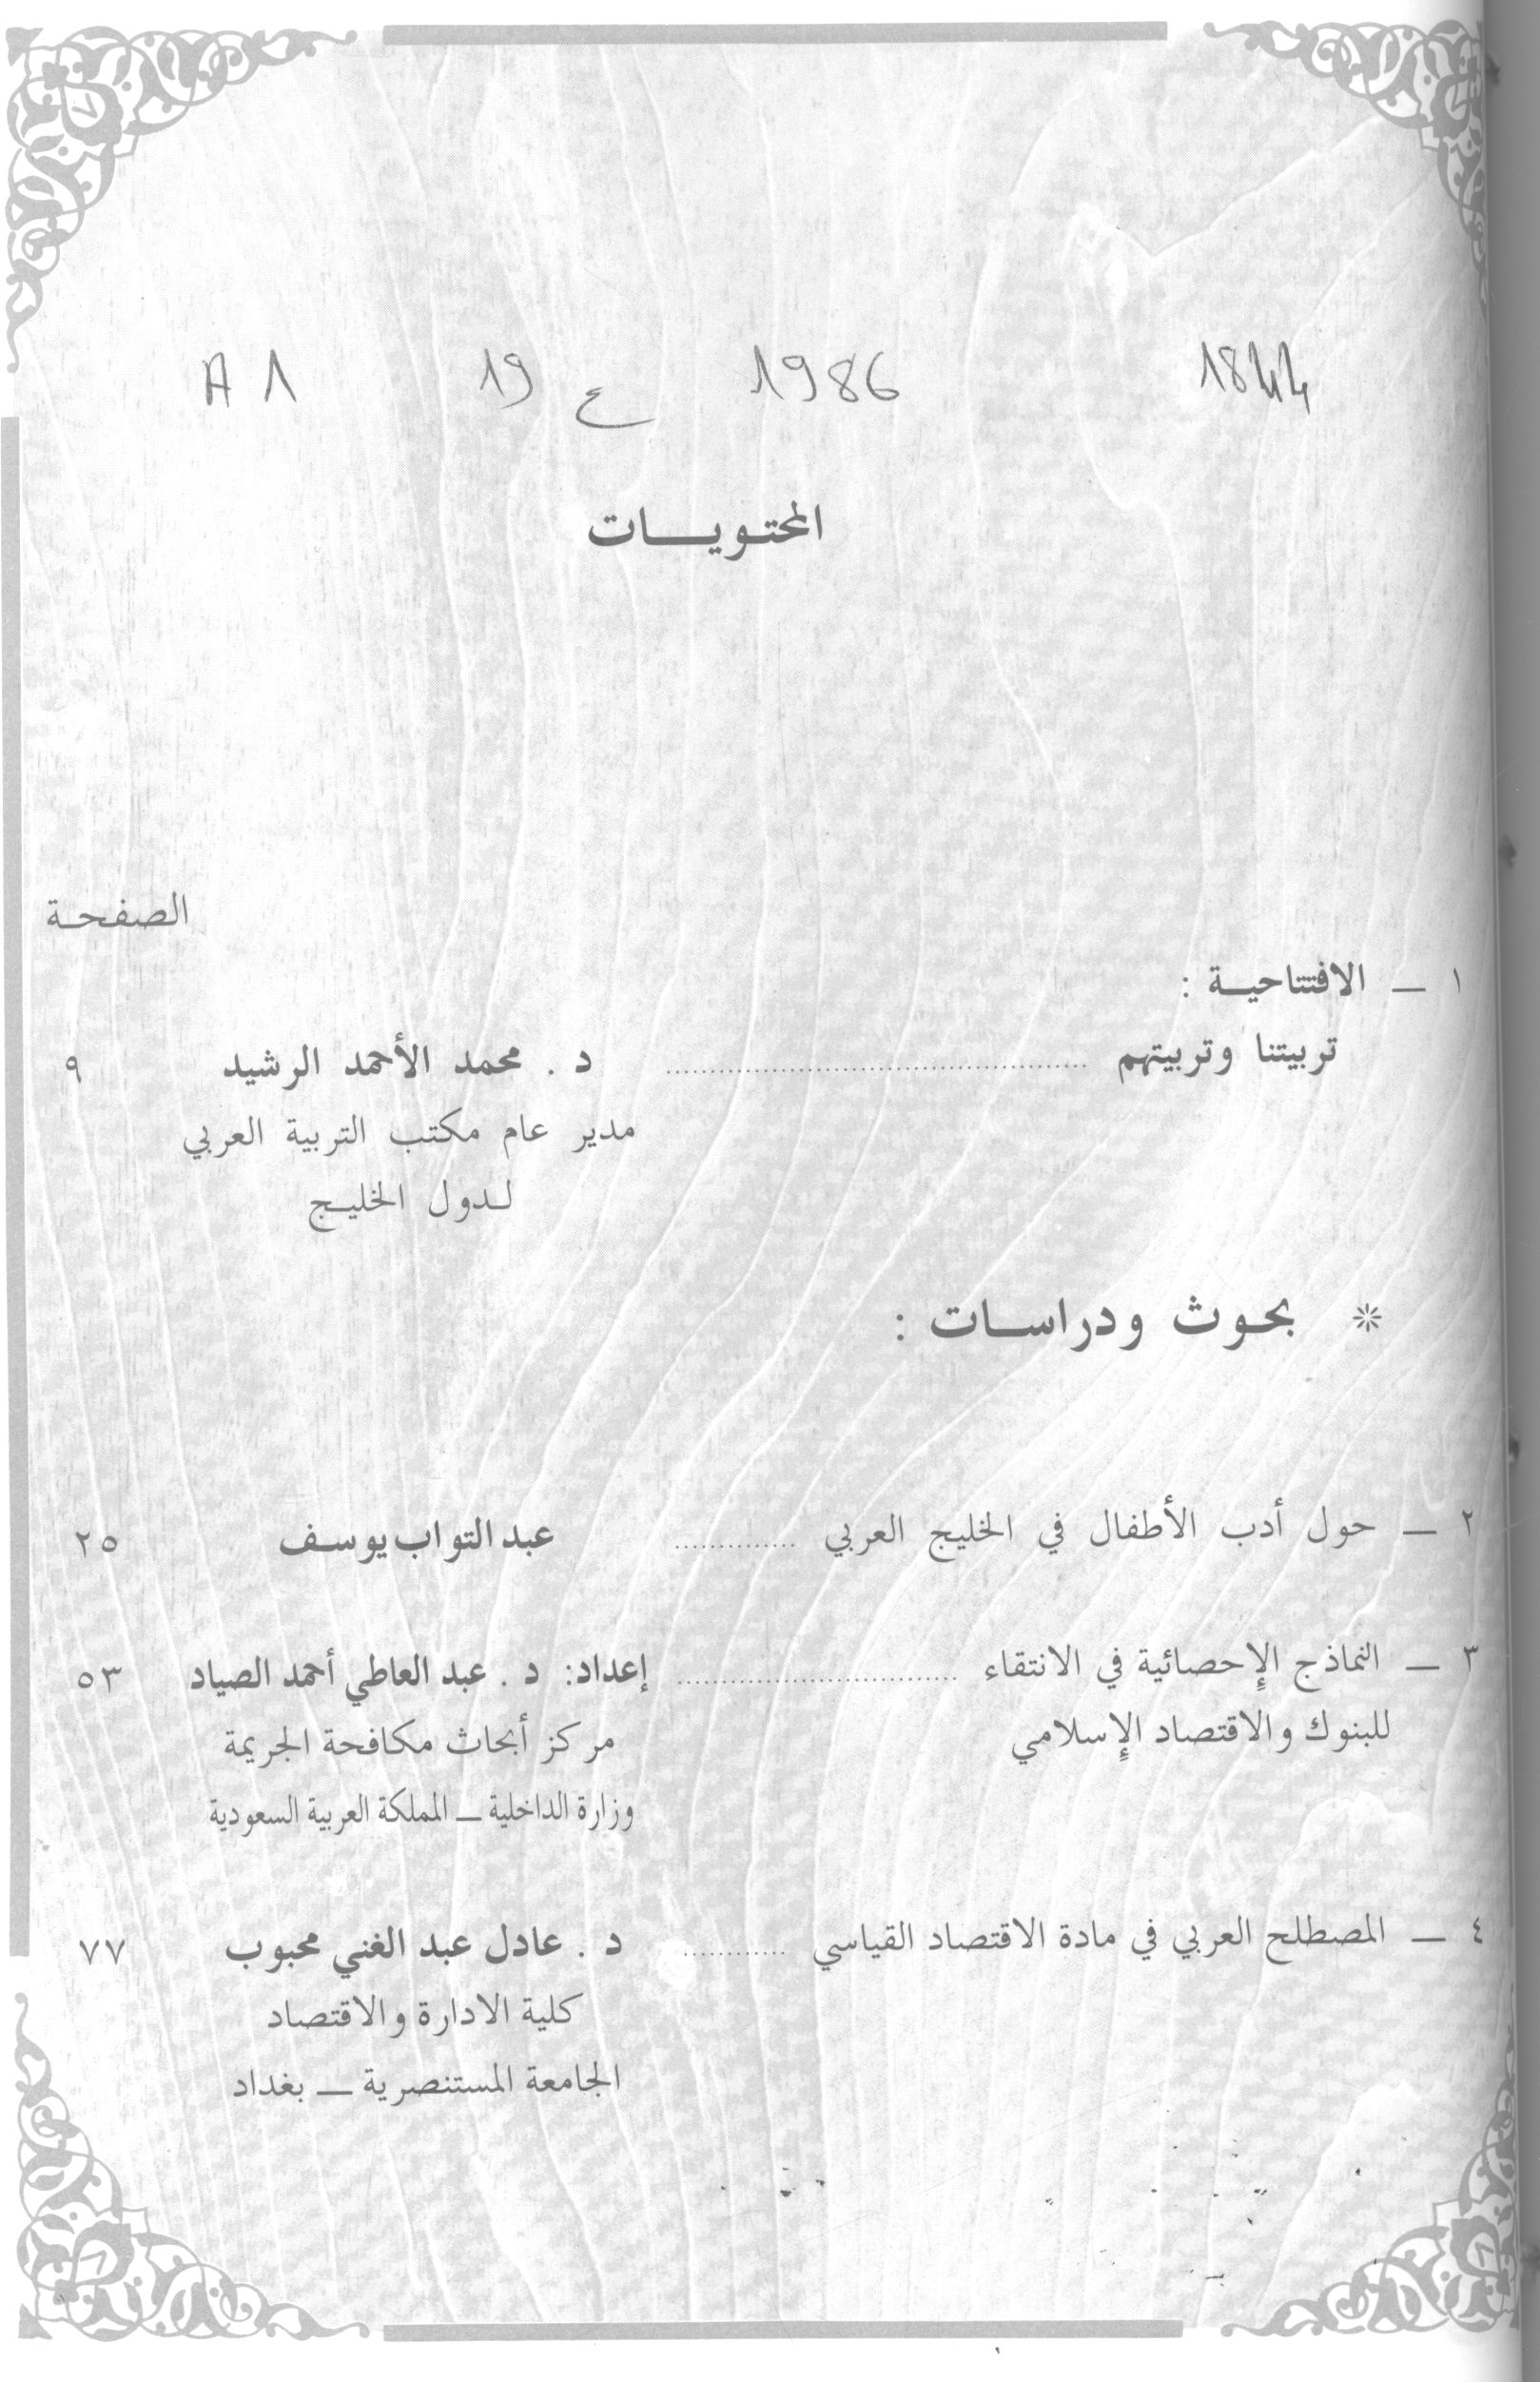 1844 1986 ع 19 A 1
المحتويات
الصفحة
١ — الافتتاحية :
تربيتنا وتربيتهم ........ د . محمد الأحمد الرشيد ٩
مدير عام مكتب التربية العربي
لدول الخليج
* بحوث ودراسات :
٢ — حول أدب الأطفال في الخليج العربي ........ عبد التواب يوسف ٢٥
٣ — النماذج الإحصائية في الانتقاء ........ إعداد: د . عبد العاطي أحمد الصياد ٥٣
للبنوك والاقتصاد الإسلامي مركز أبحاث مكافحة الجريمة
وزارة الداخلية — المملكة العربية السعودية
٤ — المصطلح العربي في مادة الاقتصاد القياسي ........ د . عادل عبد الغني محبوب ٧٧
كلية الادارة والاقتصاد
الجامعة المستنصرية — بغداد